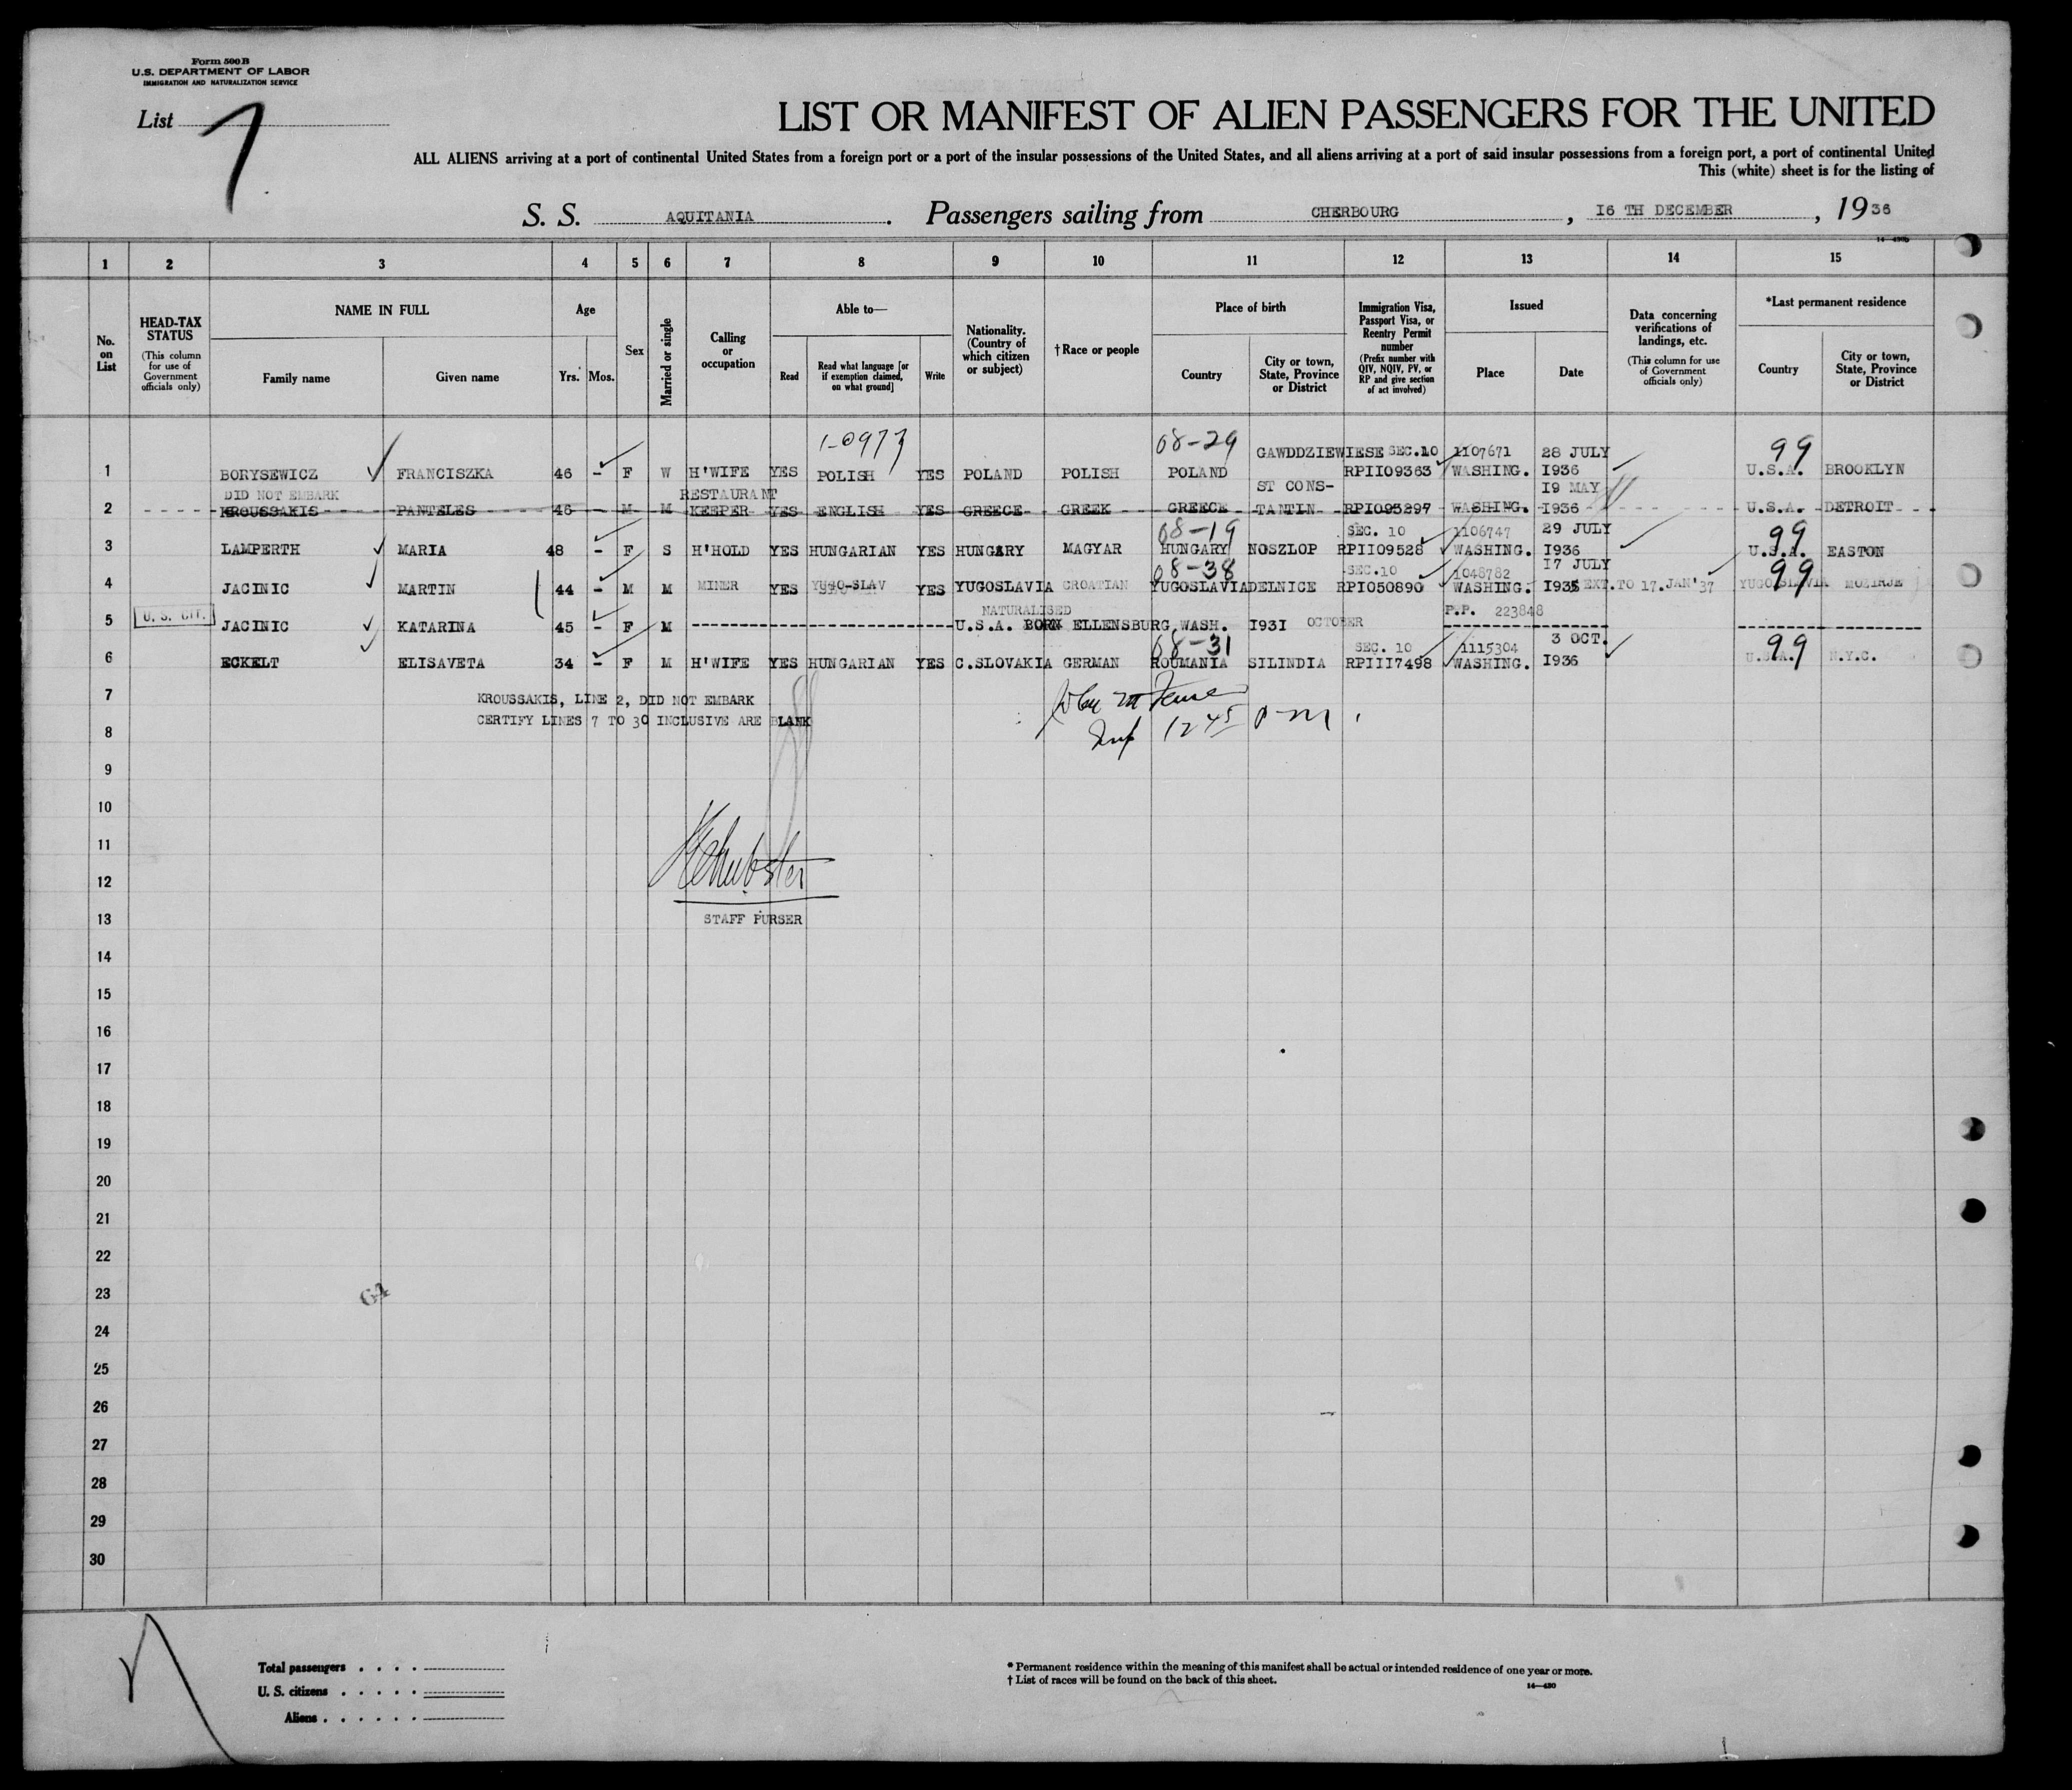 Form 500 B
U.S. DEPARTMENT OF LABOR
IMMIGRATION AND NATURALIZATION SERVICE
List 7
LIST OR MANIFEST OF ALIEN PASSENGERS FOR THE UNITED
ALL ALIENS arriving at a port of continental United States from a foreign port or a port of the insular possessions of the United States, and all aliens arriving at a port of said insular possessions from a foreign port, a port of continental United
This (white) sheet is for the listing of
S. S. AQUITANIA. Passengers sailing from CHERBOURG, I6 TH DECEMBER, 1936
14—430b
1 2 3 4 5 6 7 8 9 10 11 12 13 14 15
No. on List
HEAD-TAX STATUS
(This column for use of Government officials only)
NAME IN FULL
Family name
Given name
Age
Yrs. Mos.
Sex
Married or single
Calling or occupation
Able to—
Read
Read what language [or if exemption claimed, on what ground]
Write
Nationality. (Country of which citizen or subject)
†Race or people
Place of birth
Country
City or town, State, Province or District
Immigration Visa, Passport Visa, or Reentry Permit number
(Prefix number with QIV, NQIV, PV, or RP and give section of act involved)
Issued
Place
Date
Data concerning verifications of landings, etc.
(This column for use of Government officials only)
*Last permanent residence
Country
City or town, State, Province or District
1-0977 08-29 GAWDDZIEWIESE SEC.10 1107671 28 JULY 99
1 BORYSEWICZ FRANCISZKA 46 - F W H'WIFE YES POLISH YES POLAND POLISH POLAND RPII09363 WASHING. I936 U.S.A. BROOKLYN
DID NOT EMBARK RESTAURANT ST CONS- I9 MAY
2 KROUSSAKIS PANTELES 46 - M M KEEPER YES ENGLISH YES GREECE GREEK GREECE TANTIN RPI095297 WASHING. I936 U.S.A. DETROIT
08-19 SEC. 10 1106747 29 JULY 99
3 LAMPERTH MARIA 48 - F S H'HOLD YES HUNGARIAN YES HUNGARY MAGYAR HUNGARY NOSZLOP RPII09528 WASHING. I936 U.S.A. EASTON
08-38 SEC.10 1048782 I7 JULY 99
4 JACINIC MARTIN 44 - M M MINER YES YUGO-SLAV YES YUGOSLAVIA CROATIAN YUGOSLAVIA DELNICE RPI050890 WASHING. I935 EXT.TO 17.JAN'37 YUGOSLAVIA
NATURALISED P.P. 223848
U. S. CIT. 5 JACINIC KATARINA 45 - F M U.S.A. BORN ELLENSBURG WASH. I93I OCTOBER
08-31 SEC. 10 1115304 3 OCT. 99
6 ECKELT ELISAVETA 34 - F M H'WIFE YES HUNGARIAN YES C.SLOVAKIA GERMAN ROUMANIA SILINDIA RPIII7498 WASHING. I936 U.S.A. N.Y.C.
7 KROUSSAKIS, LINE 2, DID NOT EMBARK
CERTIFY LINES 7 TO 30 INCLUSIVE ARE BLANK
8
1245 p.m.
9
10
11
12
13 STAFF PURSER
14
15
16
17
18
19
20
21
22
23
64
24
25
26
27
28
29
30
Total passengers
U. S. citizens
Aliens
* Permanent residence within the meaning of this manifest shall be actual or intended residence of one year or more.
† List of races will be found on the back of this sheet.
14—430